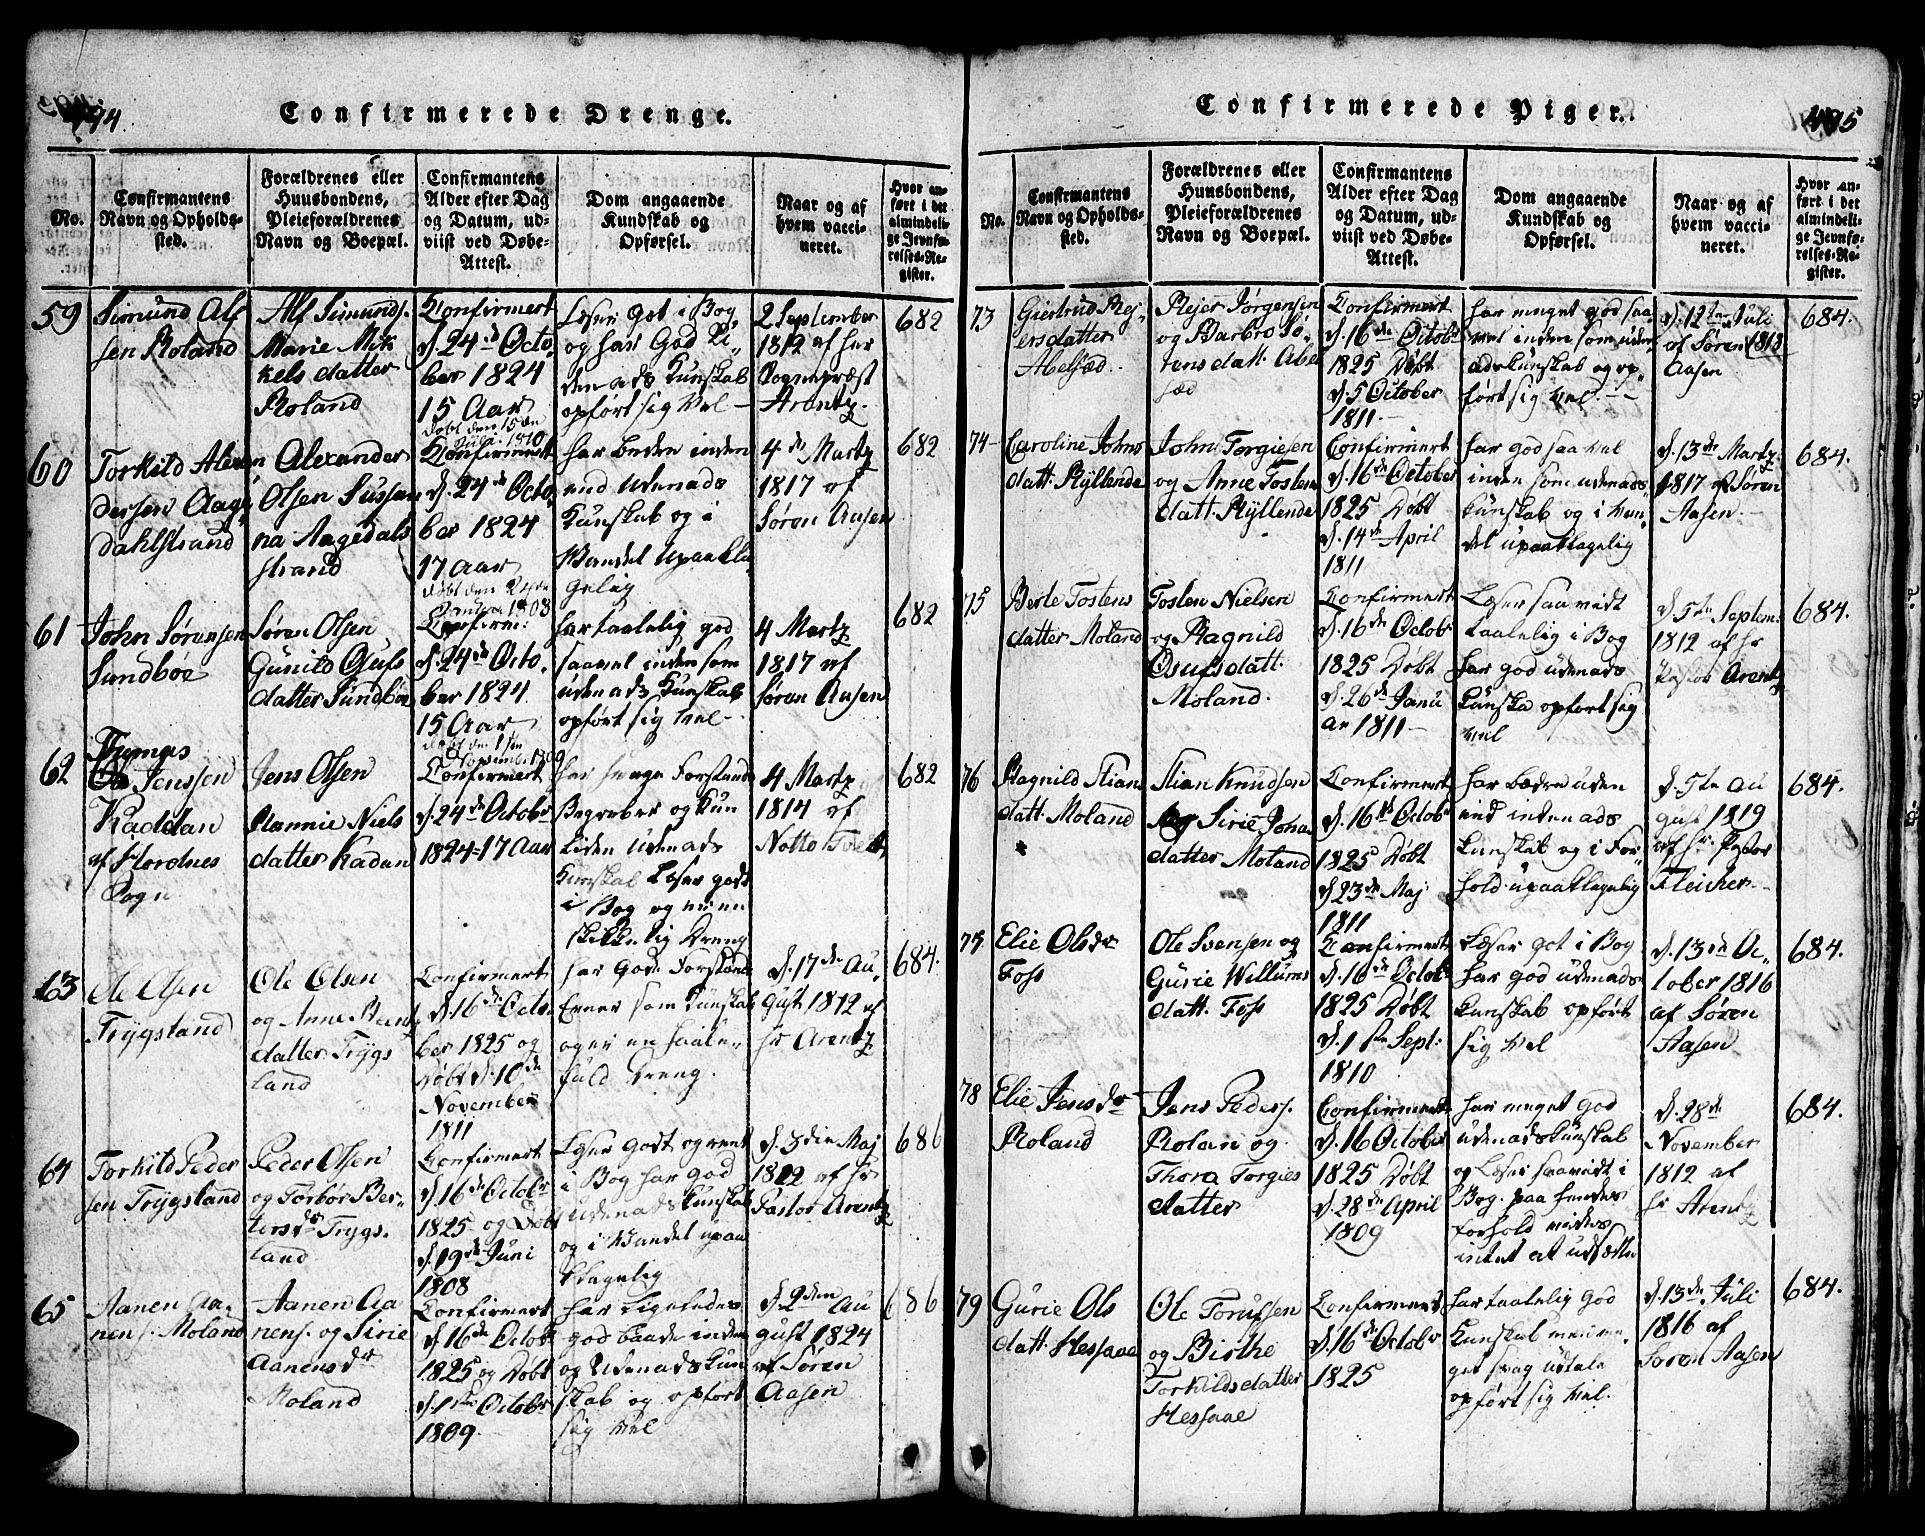 494
Confirmerede Drenge.
No.
Confirmantens
Navn og Opholds-
sted.
Forældrenes eller
Huusbondens,
Pleieforældrenes
Navn og Boepæl.
Confirmantens
Alder efter Dag
og Datum, ud-
viist ved Døbe-
Attest.
Dom angaaende
Kundskab og
Opførsel.
Naar og af
hvem vacci-
neret.
Hvor an-
ført i det
almindeli-
ge Jevnfø-
relses-Re-
gister.
59
Simund Alf
sen Roland
Alf Simunds.
Marie Mik
kels datter
Roland
Confirmert
d. 24de Octo
ber 1824
15 Aar
Døbt den 15de
1810
Læser Got i Bog
og har God Ü-
denads Kunskab
opført sig Vel -
2 September
1812 af her
Sogneprest
Arentz.
682
60
Torkild Alexan
dersen Aage
dahlstrand
Alexander
Olsen Sussan
na Aagedals
strand
Confirmert
d. 24de Octo
ber 1824
17 Aar
Døbt den 24de
1808
har beden inden
end Udenads
Kunskab og i
Wandel Upaakla
gelig
4de Martz
1817 af
Søren Aasen
682
61
John Sørensen
Sundbøe
Søren Olsen
Gunild Osufs
datter Sundbøe
Confirm:
d. 24de Octo
ber 1824
15 Aar
Døbt den 1ste
November 1809
har taalelig god
saavel inden som
üdenads Kunskab
opført sig Vel -
4 Martz
1817 af
Søren Aasen
682
62
Tomas
Jenssen
Kaddan
af
Sogn
Jens Olsen
Rannie Niels
datter Kadan
Confirmert
d. 24de Octobr
1824 - 17 Aar
har Forstand
Begreber og Kun
Liden üdenads
Kunskab Læser godt
i Bog og er en
skikkelig Dreng
4 Martz
1814 af
Notto
682
63
Ole Olsen
Trygsland
Ole Olsen
og Anne Bernt
datter Trygs
land
Confirmert
d. 16de Octo
ber 1825 og
Døbt d. 10de
November
1811
har Gode Forstand
Evner som Kunskab
og er en
fuld Dreng.
d. 17de Au-
gust 1812 af
hr Arentz
684.
64
Torkild Peder
sen Trygsland
Peder Olsen
og Torbør Ber-
tersdr Trygs.
land
Confirmert
d. 16de Octobr
1825 og Døbt
d. 19de Juni
1808
Læser Godt og rent
i Bog har God
üdenads Kunskab
og i Wandel upaa
klagelig
d. 3die Maj
1812 af hr
Pastor Arentz
686
65
Aanen Aa-
nens. Moland
Aanen Aa
nens. og Sirie
Aanensdr
Moland
Confirmert
d. 16de Octobr
1825 og Døbt
d. 1ste Octobr
1809.
har Ligeledes
god baade inden
og Udenads Kun
skab og opført
sig Vel
d. 2den Au
gust 1824
af Søren
Aasen
686
Confirmerede Piger.
495
No.
Confirmantens
Navn og Opholds-
sted.
Forældrenes eller
Huusbondens,
Pleieforældrenes
Navn og Boepæl.
Confirmantens
Alder efter Dag
og Datum, ud-
viist ved Døbe-
Attest.
Dom angaaende
Kundskab og
Opførsel.
Naar og af
hvem vacci-
neret.
Hvor an-
ført i det
almindeli-
ge Jevnfø-
relses-Re-
gister.
73
Giertrud Rej-
ersdatter
Abelsæd.
Rejer Jørgensen
og Barbro Sø-
rensdatt: Abel
sæd
Confirmert
d. 16de Octobr
1825 Døbt
d. 5 October
1811.-
har meget god saa
vel inden som uden-
adskunskab og op-
ført sig Vel. -
d. 12te Juli
af Søren 1818
Aasen
684.
74
Caroline Johns
datt. Ryllende
John Torgiesen
og Anne Tosten
datt. Ryllende
Confirmert
d. 16de October
1825 Døbt
d. 14de April
1811
har god saa vel
inden som udenads-
kunskab og i Van-
del upaaklagelig
d. 13de Martz
1817 af Søren
Aasen.-
684.
75
Berte Tostens
datter Moland
Tosten Nielsen
og Ragnild
Osufsdatt.
Moland.
Confirmert
d. 16de Octobr
1825 Døbt
d. 26de Janu
ar 1811 -
Læser saavidt
taalelig i Bog
har god udenads
kunska opført sig
Vel
d. 5te Septem:
1812 af hr
Pastor Arentz
684.
76
Ragnild Stian
datt: Moland
Stian Knudsen
og Sirie Johns
datter Moland
Confirmert
d. 16de Octobr
1825 Døbt
d. 23de Maj
1811
har bædre uden
end indenads
kunskab og i For-
hold upaaklagelig
d. 5te Au
gust 1819
af hr. Pastor
Fleicher -
684.
77
Elie Olsdr
Foss
Ole Svensen og
Gurie Willums
datt. Foss
Confirmert
d. 16de Octobr
1825 Døbt
d. 1ste Sept:
1810
Læser got i Bog
har god udenads
kunskab opført
sig Vel
d. 13de Oc-
tober 1816
af Søren
Aasen
684.
78
Elie Jensdr
Roland
Jens Peders.
Rolan og
Thora Torgies
datter
Confirmert
d. 16 October
1825 Døbt
d. 28de April
1809
har meget god
udenadskunskab
og Læser saavidt i
Bog. paa hendes
forhold vides
intet at udsætte
d. 28de
November
1812 af
hr Arentz
684.
79
Gurie Ols
datt. Hessaae
Ole Torufsen
og Birthe
Torkildsdatter
Hessaae
Confirmert
d. 16de Octobr
1825
har taalelig god
Kunskab men me-
get svag udtale
opført sig Vel.
d. 13de Juli
1816 af
Søren Aasen
684.